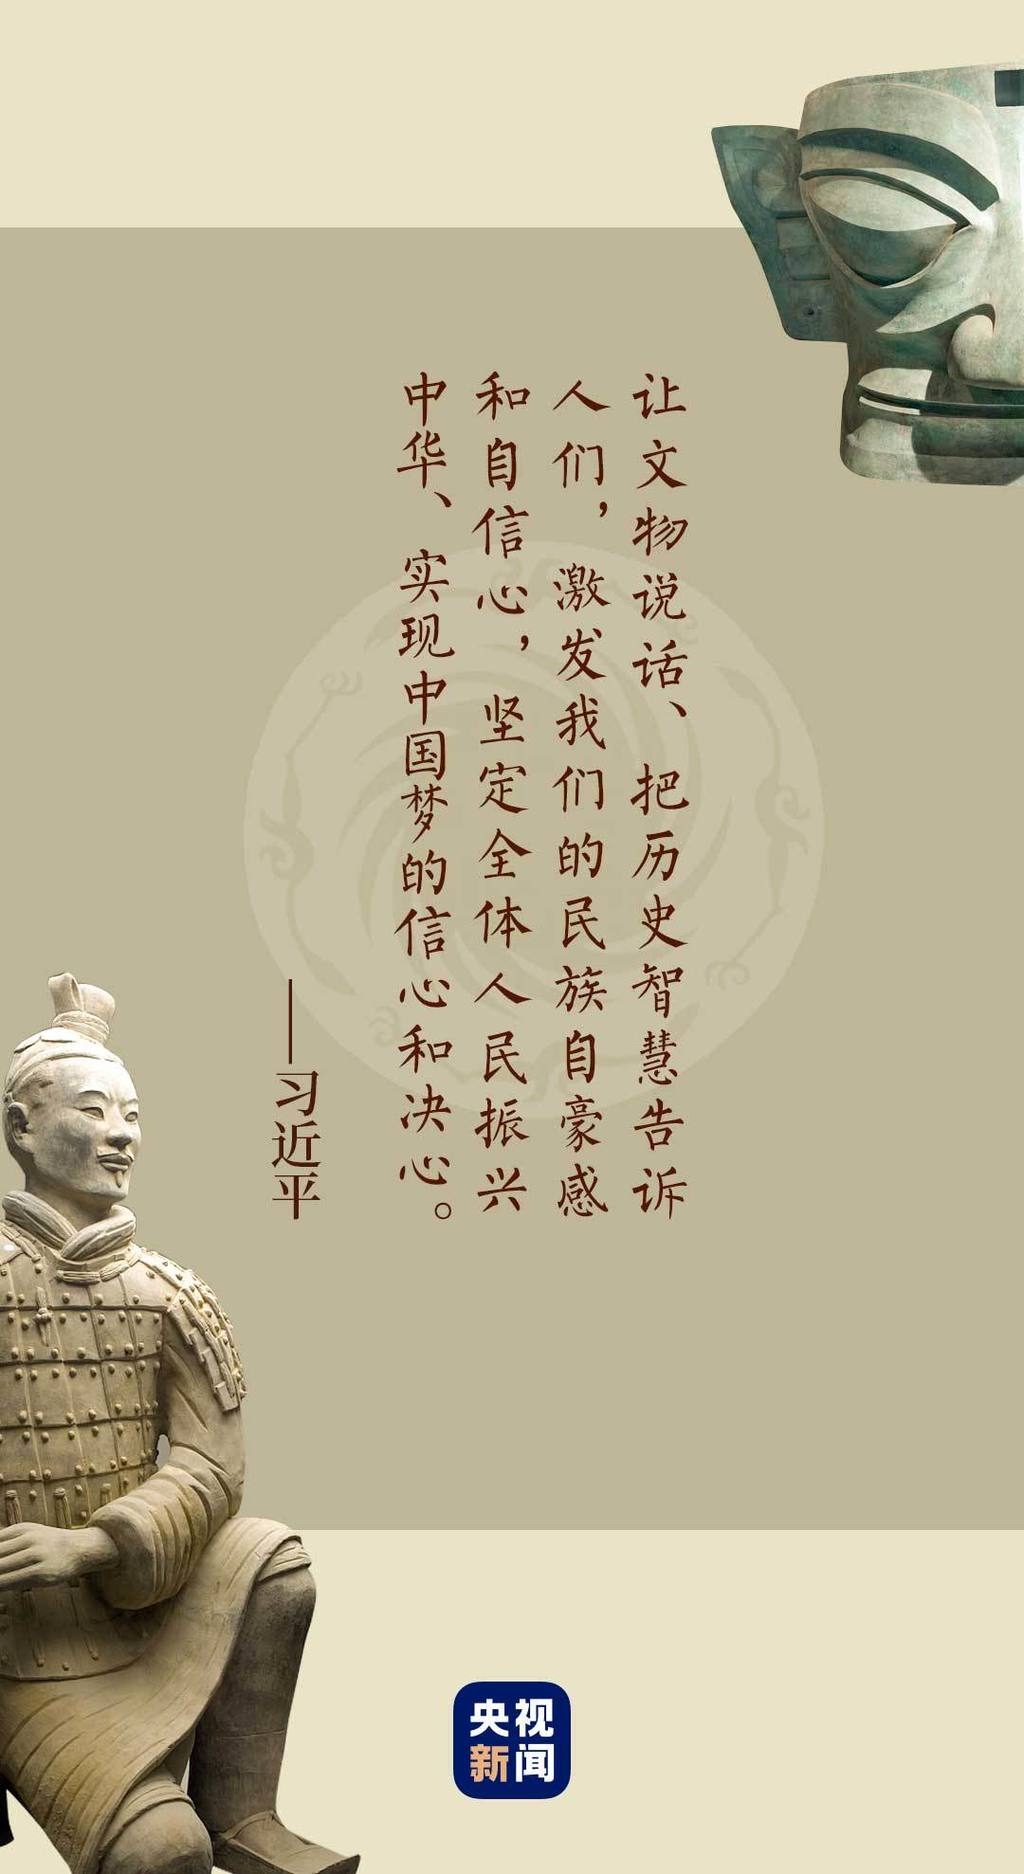 让文物说话、把历史智慧告诉
人们，激发我们的民族自豪感
和自信心，坚定全体人民振兴
中华、实现中国梦的信心和决心。
——习近平
央视
新闻